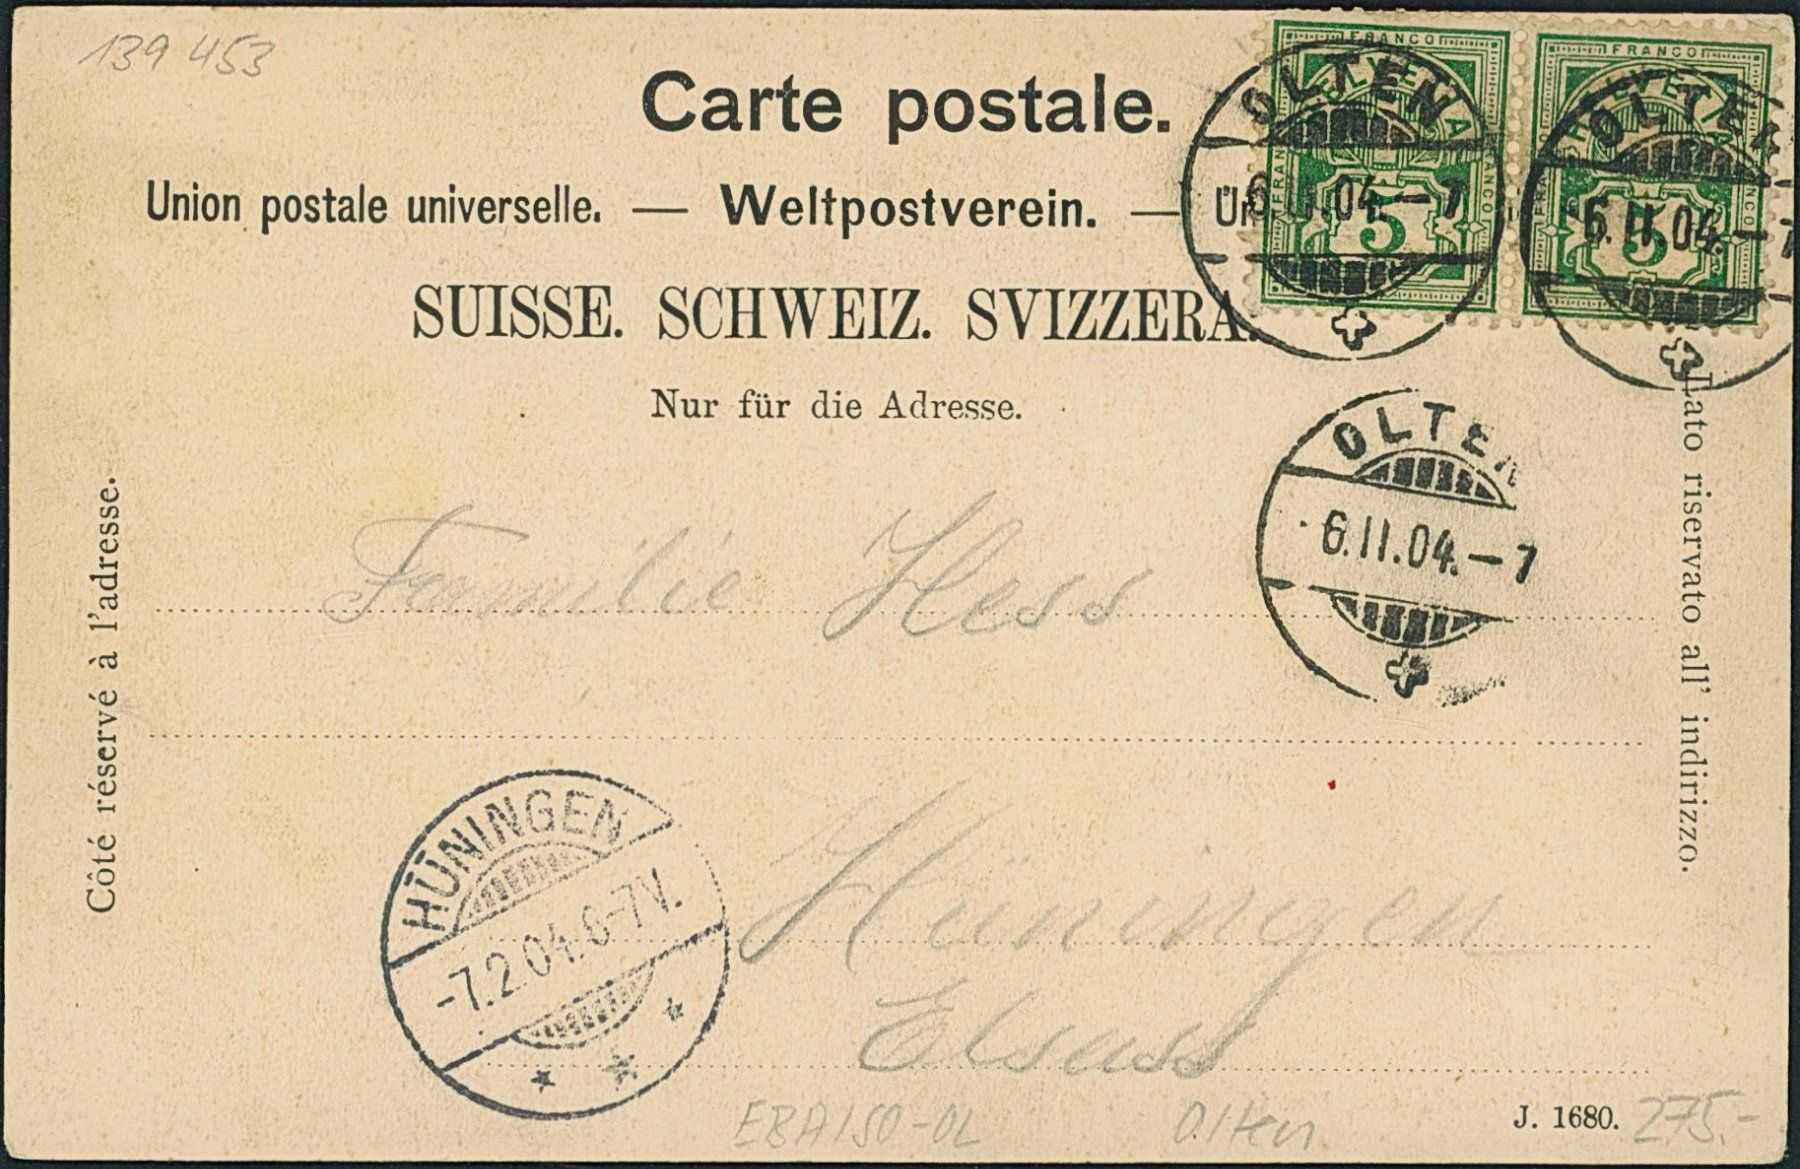 139 453
Carte postale.
Union postale universelle. — Weltpostverein. —
SUISSE. SCHWEIZ. SVIZZERA.
Nur für die Adresse.
FRANCO
HELVETIA
FRANCO
FRANCO
5
FRANCO
HELVETIA
FRANCO
FRANCO
5
OLTEN
6.II.04.–7
OLTEN
6.II.04.–7
OLTEN
6.II.04.–7
Côté réservé à l'adresse.
Lato riservato all' indirizzo.
Familie Hess
Hüningen
Elsass
HÜNINGEN
-7.2.04.6-7V.
EBA150-OL
Olten
J. 1680.
275.-